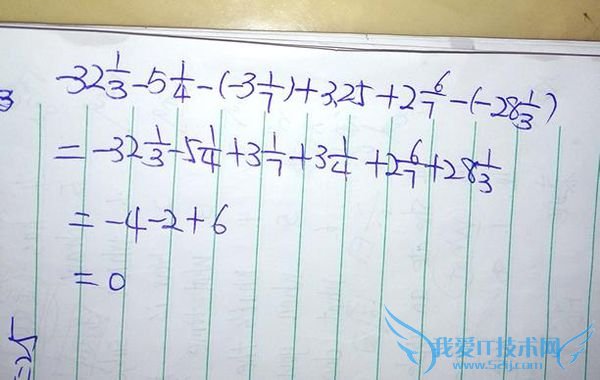 -32 1/3 - 5 1/4 - (-3 1/7) + 3.25 + 2 6/7 - (-28 1/3)
3
= -32 1/3 - 5 1/4 + 3 1/7 + 3 1/4 + 2 6/7 + 28 1/3
= -4 - 2 + 6
= 0
=25
我爱IT技术网
www.52ij.com